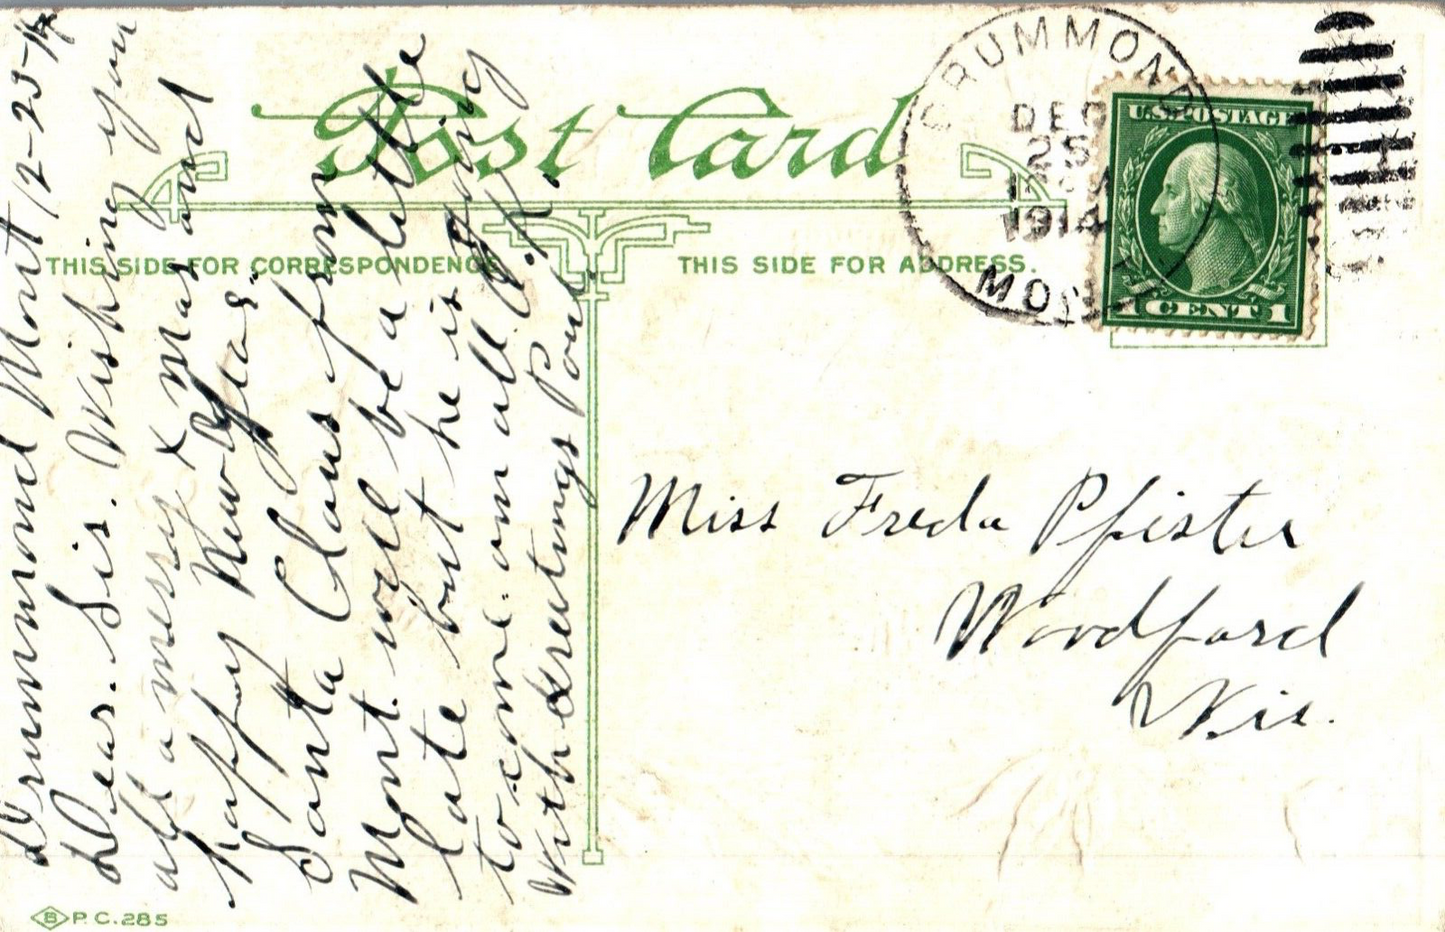 Post Card
THIS SIDE FOR CORRESPONDENCE
THIS SIDE FOR ADDRESS.
DRUMMOND
DEC
25
1914
MONT
U.S.POSTAGE
1 CENT 1
Drummond Mont 12-25-14
Dear. Sis. Wishing you
all a merry X mas and
happy New Year.
Santa Claus from
Mont. will be a little
late but he is going
to come. am all O.K.
With Greetings Paul
Miss Freda Pfister
Woodford
Wis.
B P.C.285